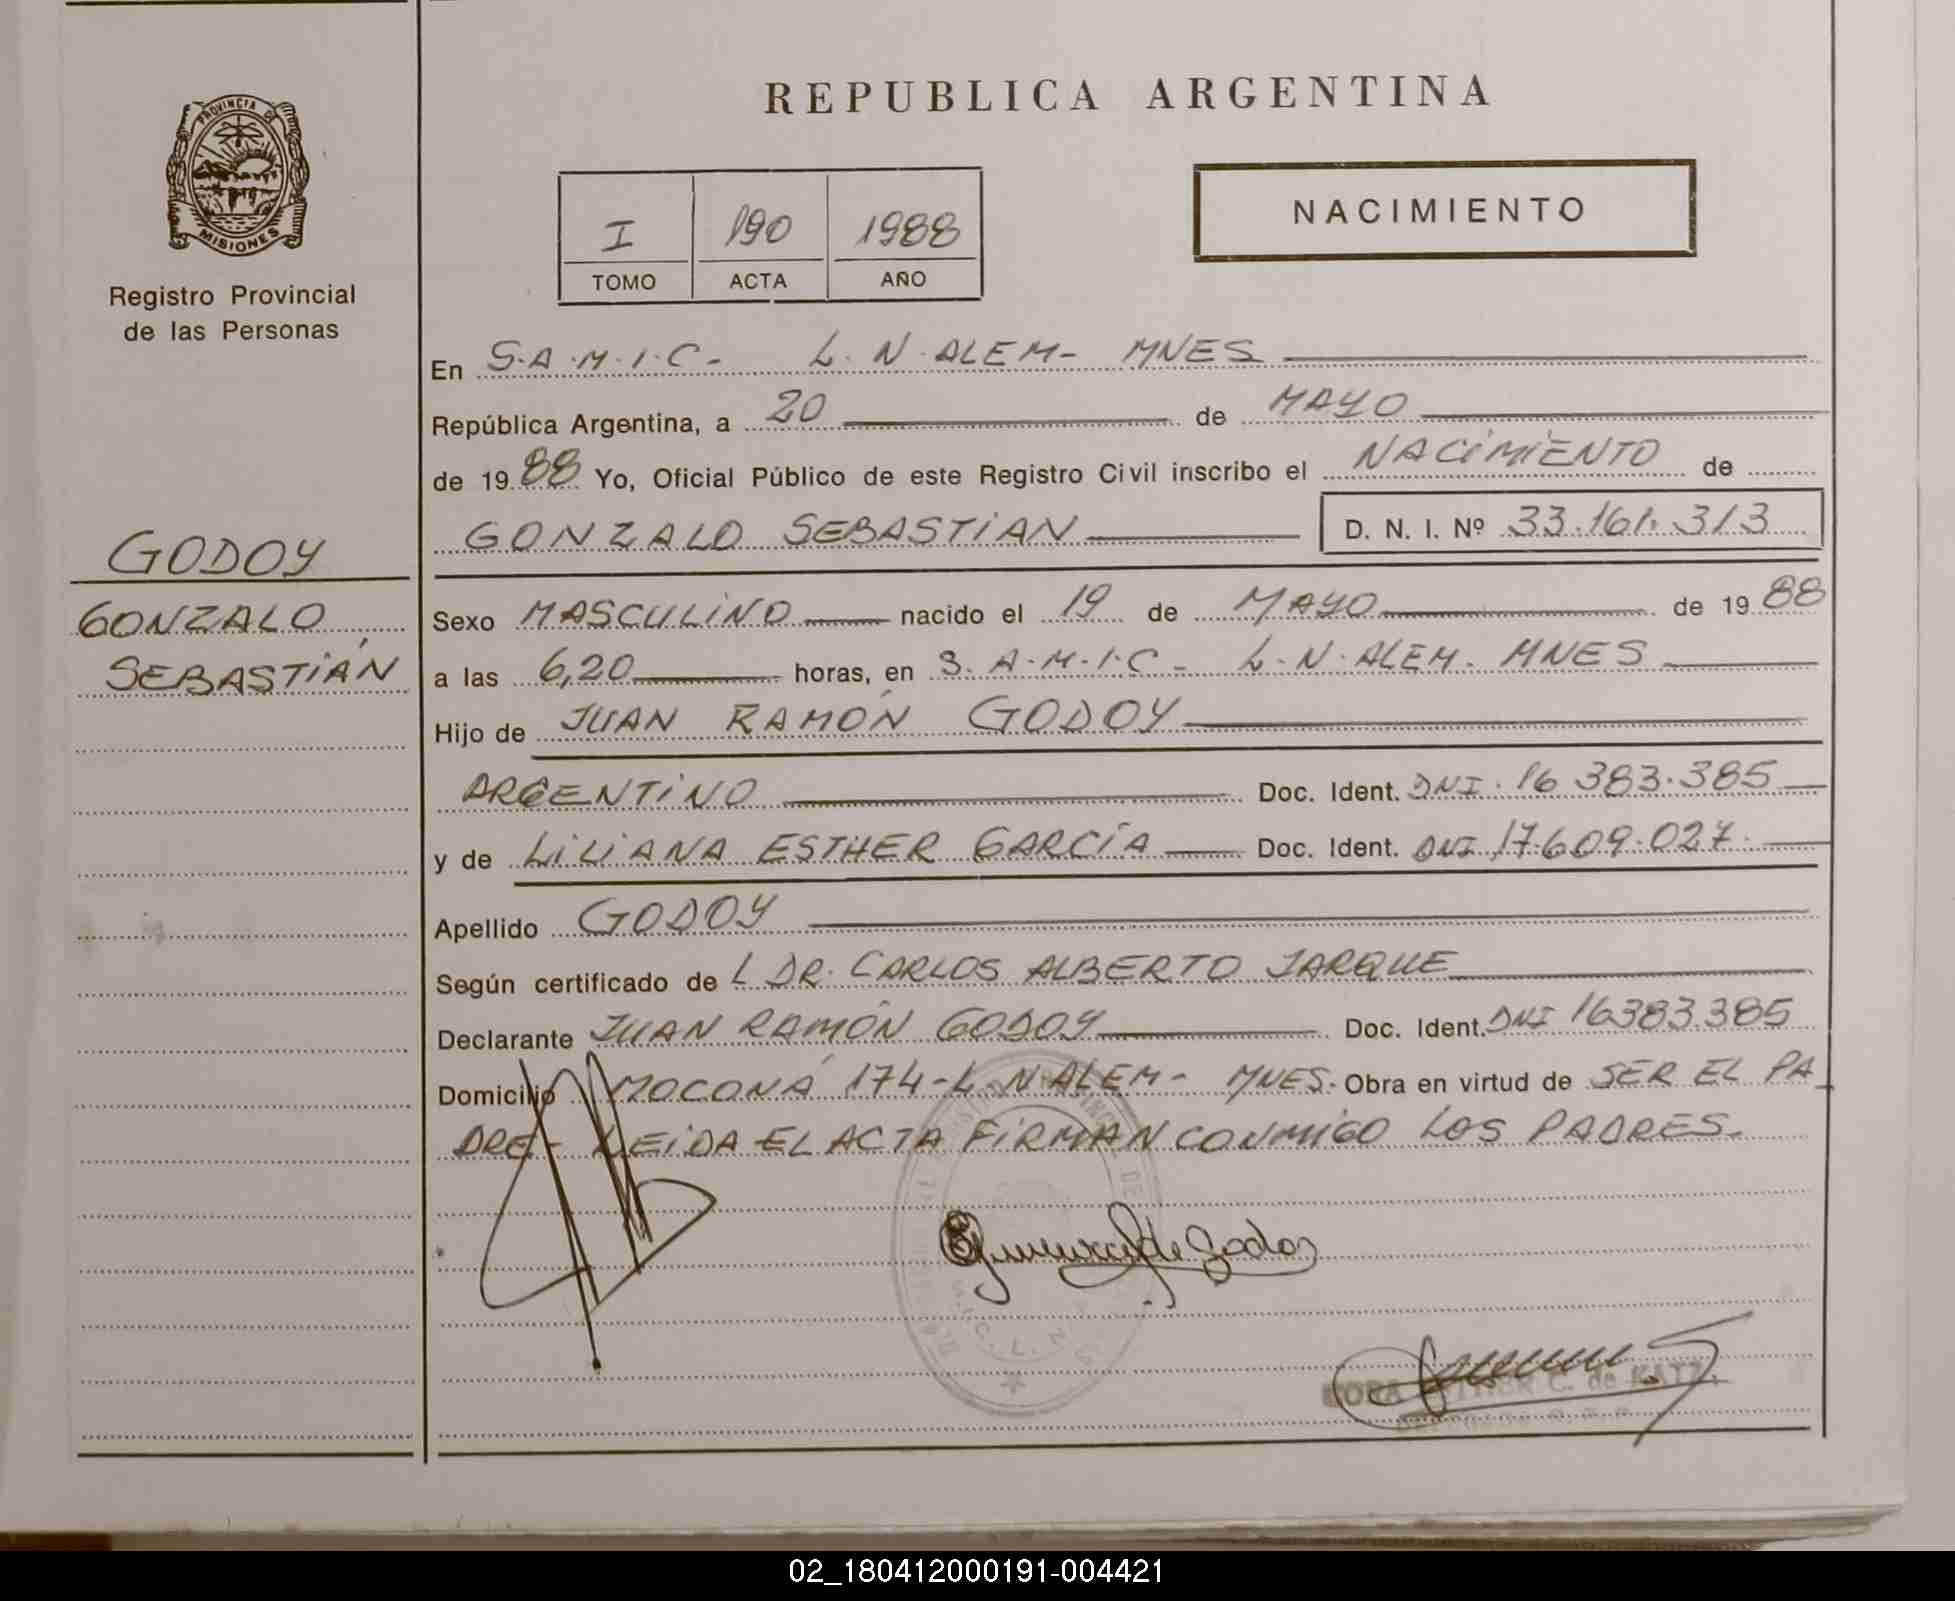 REPUBLICA ARGENTINA
PROVINCIA DE
MISIONES
Registro Provincial
de las Personas
NACIMIENTO
I 190 1988
TOMO ACTA AÑO
En S.A.M.I.C- L.N.ALEM- MNES
República Argentina, a 20 de MAYO
de 1988 Yo, Oficial Público de este Registro Civil inscribo el NACIMIENTO de
GONZALO SEBASTIAN D. N. I. Nº 33.161.313
GODOY
GONZALO
SEBASTIÁN
Sexo MASCULINO nacido el 19 de MAYO de 1988
a las 6,20 horas, en S.A.M.I.C- L.N.ALEM. MNES
Hijo de JUAN RAMÓN GODOY
ARGENTINO Doc. Ident. DNI. 16 383.385
y de LILIANA ESTHER GARCÍA Doc. Ident. DNI 17.609.027.
Apellido GODOY
Según certificado de L DR. CARLOS ALBERTO JARQUE
Declarante JUAN RAMÓN GODOY Doc. Ident. DNI 16383.385
Domicilio MOCONÁ 174-L.N ALEM- MNES. Obra en virtud de SER EL PA
DRE- LEIDA EL ACTA FIRMAN CONMIGO LOS PADRES.
de Godoy
C. de KATZ
02_180412000191-004421